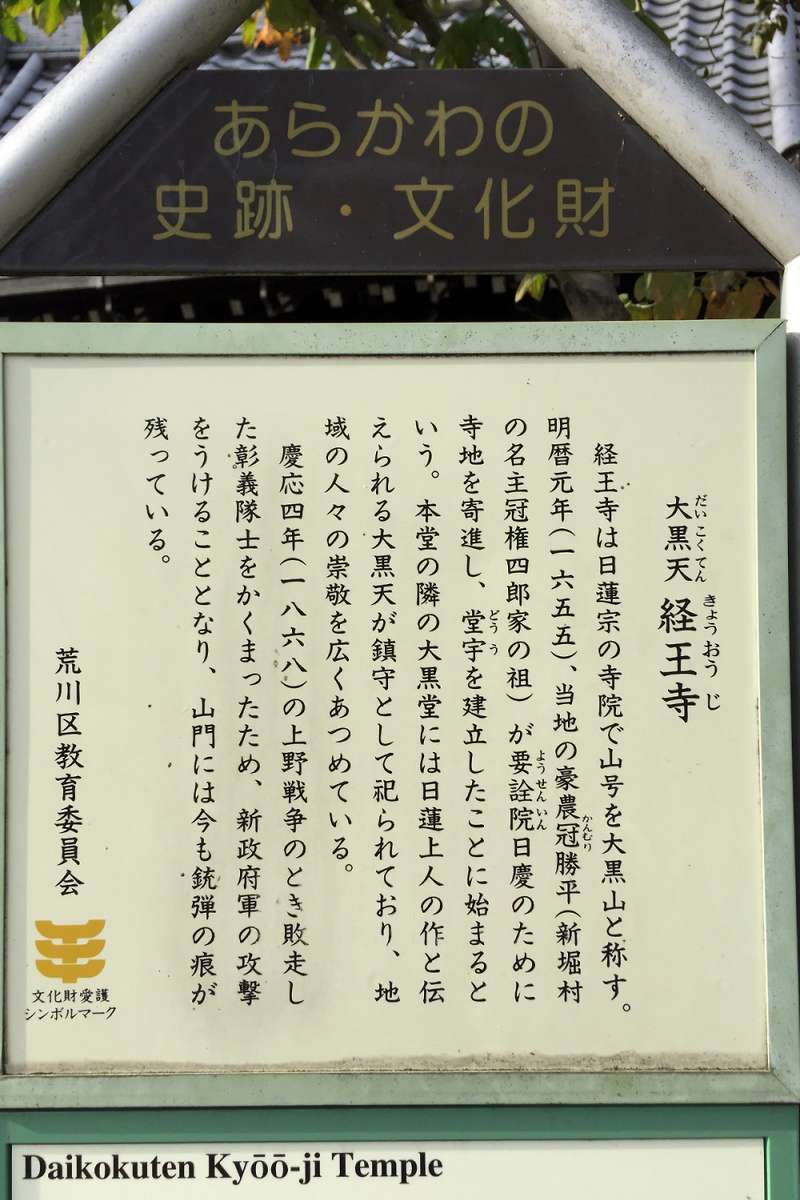 あらかわの
史跡・文化財
大黒天 経王寺
だいこくてん きょうおうじ
経王寺は日蓮宗の寺院で山号を大黒山と称す。
明暦元年(一六五五)、当地の豪農冠勝平(新堀村
かんむり
の名主冠権四郎家の祖)が要詮院日慶のために
ようせんいん
寺地を寄進し、堂宇を建立したことに始まると
どうう
いう。本堂の隣の大黒堂には日蓮上人の作と伝
えられる大黒天が鎮守として祀られており、地
域の人々の崇敬を広くあつめている。
慶応四年(一八六八)の上野戦争のとき敗走し
た彰義隊士をかくまったため、新政府軍の攻撃
をうけることとなり、山門には今も銃弾の痕が
残っている。
荒川区教育委員会
文化財愛護
シンボルマーク
Daikokuten Kyōō-ji Temple